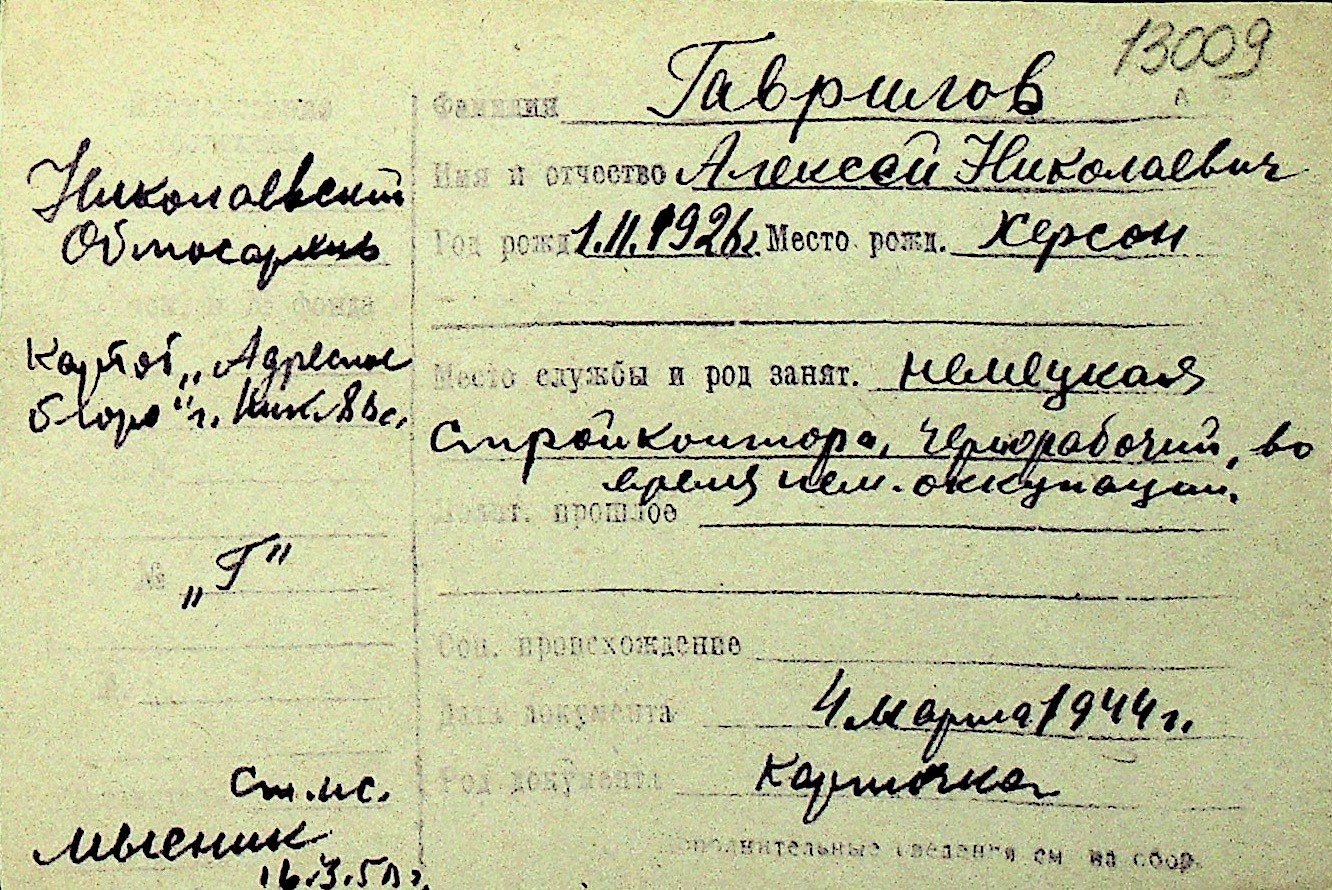 13009
Фамилия Гаврилов
Имя и отчество Алексей Николаевич
Год рожд. 1.II.1926г. Место рожд. Херсон
Место службы и род занят. немецкая
стройконтора, чернорабочий, во
время нем. оккупации.
Полит. прошлое
Соц. происхождение
Дата документа 4 марта 1944 г.
Род документа карточка
Дополнительные сведения см на обор.
Николаевский
Облгосархив
фонда
Картот. „Адресное
бюро" г.
№ „Г"
Ст. ис.
Мысник